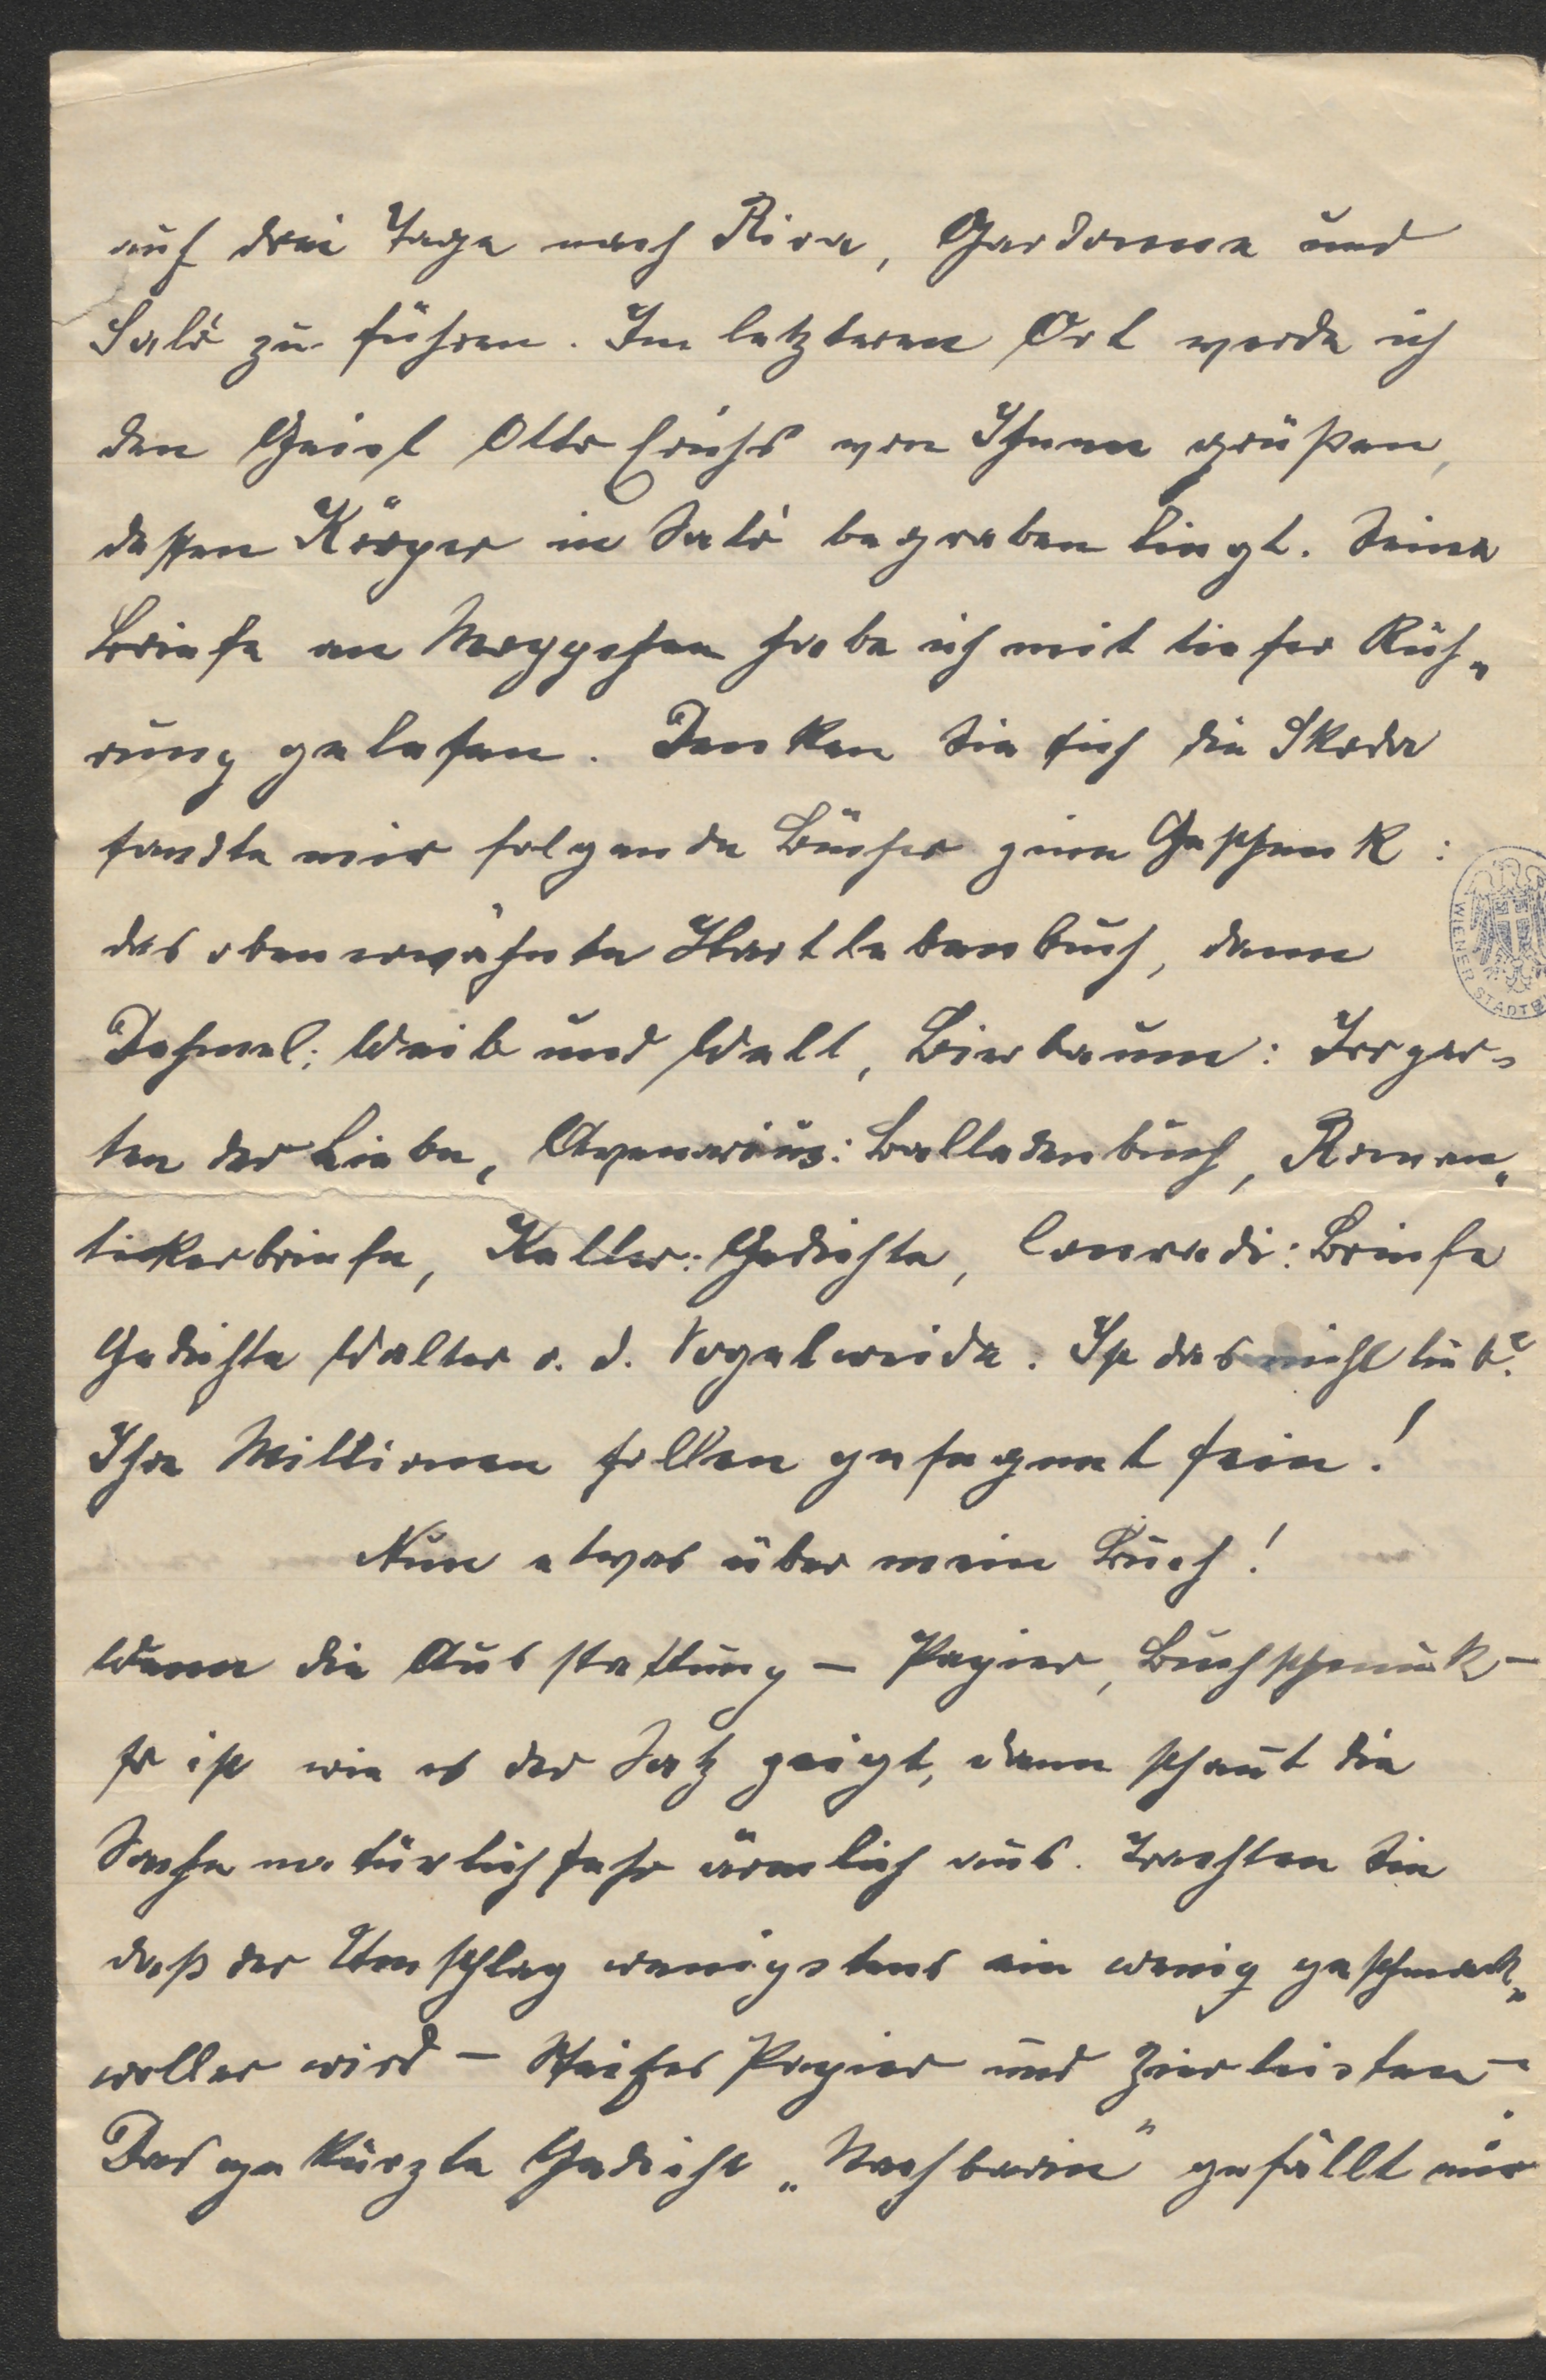 auf drei Tage nach Riva, Gardonne und
Salò zu führen. Im letzteren Ort werde ich
den Geist Otto Erichs von Ihnen grüßen,
dessen Körper in Salò begraben liegt. Seine
Briefe an Moppchen habe ich mit tiefer Rüh„
rung gelesen. Denken Sie sich die Skoda
sandte mir folgende Bücher zum Geschenk:
das obenerwähnte Hartlebenbuch, dann
Dehmel: Weib und Welt, Bierbaum: Irrgar=
ten der Liebe, Avenarius: Balladenbuch, Roman„
tickerbriefe, Keller: Gedichte, Conradi: Briefe
Gedichte Walter v. d. Vogelweide. Ist das nicht lieb?
Ihre Millionen sollen gesegnet sein!
Nun etwas über mein Buch!
Wenn die Ausstattung – Papier, Buchschmuck –
so ist wie es der Satz zeigt, dann schaut die
Sache natürlich sehr ärmlich aus. Trachten Sie
daß der Umschlag wenigstens ein wenig geschmack„
voller wird – Steifes Papier und Zierleisten –
Das gekürzte Gedicht „Nachbarin" gefällt mir
WIENER STADTB